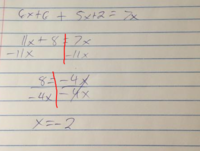 6x+6 + 5x+2 = 7x
11x + 8 = 7x
-11x -11x
8 = -4x
-4x -4x
x = -2